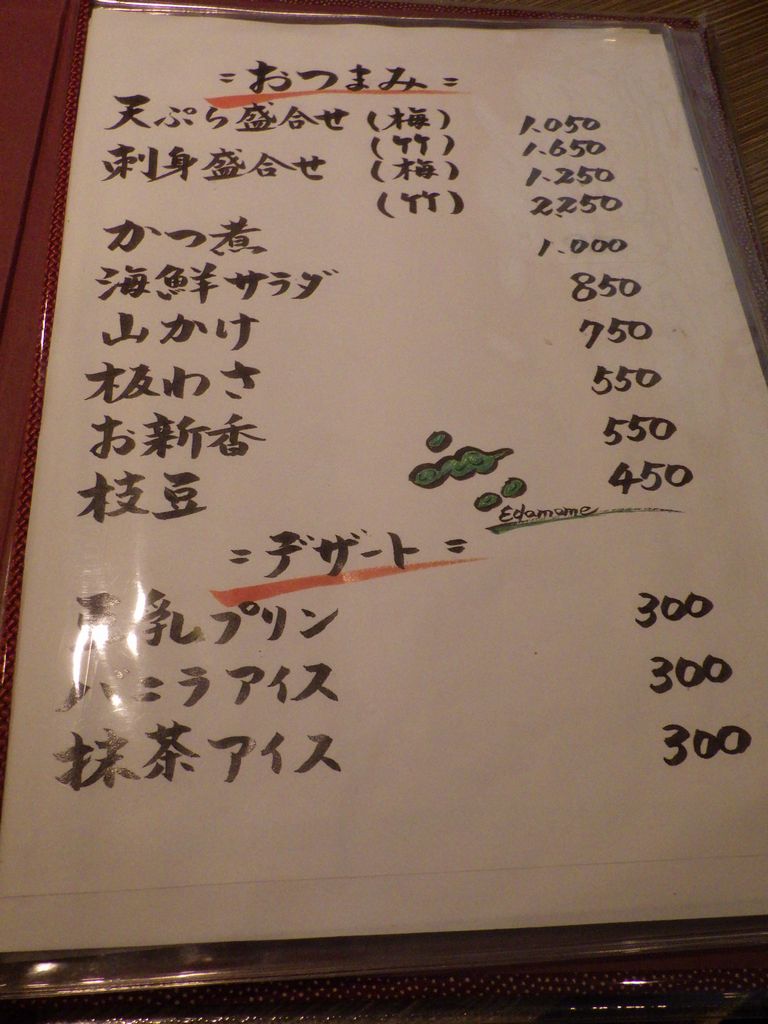 =おつまみ=
天ぷら盛合せ (梅) 1.050
(竹) 1.650
刺身盛合せ (梅) 1.250
(竹) 2250
かつ煮 1.000
海鮮サラダ 850
山かけ 750
板わさ 550
お新香 550
枝豆 450
Edamame
=デザート=
豆乳プリン 300
バニラアイス 300
抹茶アイス 300